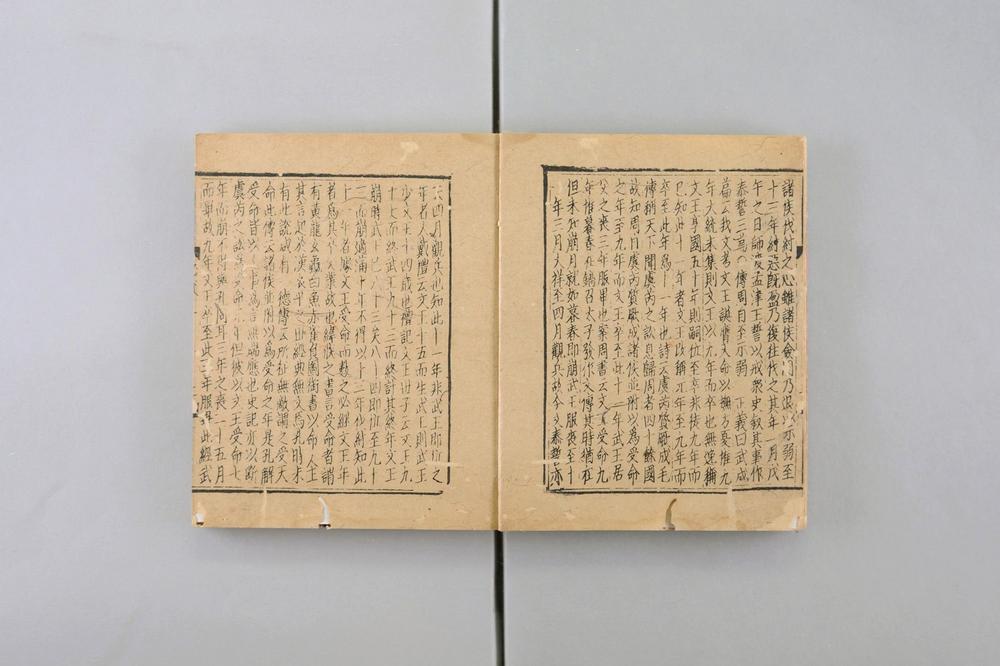 諸侯伐紂之心雖諸侯僉同乃退以示弱至
十三年紂惡既盈乃復往伐之其年一月戊
午之日師渡孟津王誓以戒衆史敘其事作
泰誓三篇〇傳周自至示弱 正義曰武成
篇云我文考文王誕膺天命以撫方夏惟九
年大統未集則文王以九年而卒也無逸稱
文王享國五十年則嗣位至卒非徒九年而
已知此十一年者文王改稱元年至九年而
卒至此年爲十一年也詩云虞芮質厥成毛
傳稱天下聞虞芮之訟息歸周者四十餘國
故知周自虞芮質厥成諸侯並附以爲受命
之年至九年而文王卒至此十一年武王居
父之喪三年服畢也案周書云文王受命九
年惟暮春在鎬召太子發作文傳其時猶在
但未知崩月就如暮春即崩武王服喪至十
一年三月大祥至四月觀兵故今文泰誓亦
云四月觀兵也知此十一年非武王即位之
年者大戴禮云文王十五而生武王則武王
少文王十四歲也禮記文王世子云文王九
十七而終武王九十三而終計其終年文王
崩時武王已八十三矣八十四即位至九十
三而崩適滿十年不得以十三年伐紂知此
十一年者據文王受命而數之必繼文王年
者爲其卒父業故也緯候之書言受命者謂
有黃龍玄龜白魚赤雀負圖銜書以命人主
其言起於漢哀平之世經典無文焉孔時未
有此說咸有一德傳云所征無敵謂之受天
命此傳云諸侯並附以爲受命之年是孔解
受命皆以人事爲言無瑞應也史記亦以斷
虞芮之訟爲受命之年但彼以文王受命七
年而崩不得與孔同耳三年之喪二十五月
而畢故九年文王卒至此一年服畢此經武